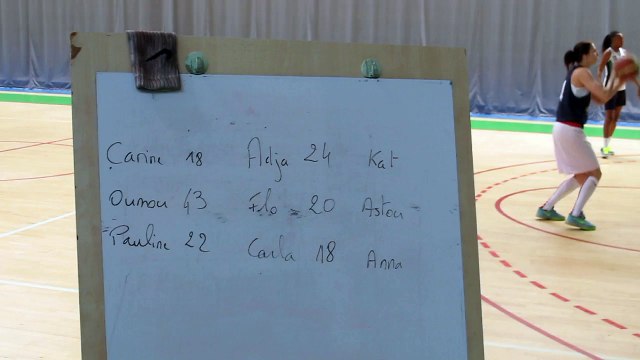 Carine 18 Adja 24 Kat
Oumou 43 Filo 20 Astou
Pauline 22 Carla 18 Anna